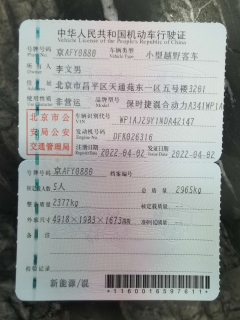 中华人民共和国机动车行驶证
Vehicle License of the People's Republic of China
号牌号码 京AFY0880 车辆类型 Vehicle Type 小型越野客车
所有人 李文男
住址 北京市昌平区天通苑东一区五号楼3201
使用性质 非营运 品牌型号 Model 保时捷混合动力
北京市公安局公安交通管理局
车辆识别代号 WP1AJ29Y1NDA42147
发动机号码 DFK026316
注册日期 2022-04-02 发证日期 2022-04-02
号牌号码 京AFY0880 档案编号
核定载人数 5人 总质量 2965kg
整备质量 2377kg 核定载质量
外廓尺寸 4918×1983×1673
检验记录
新能源/混
*1160016597611*